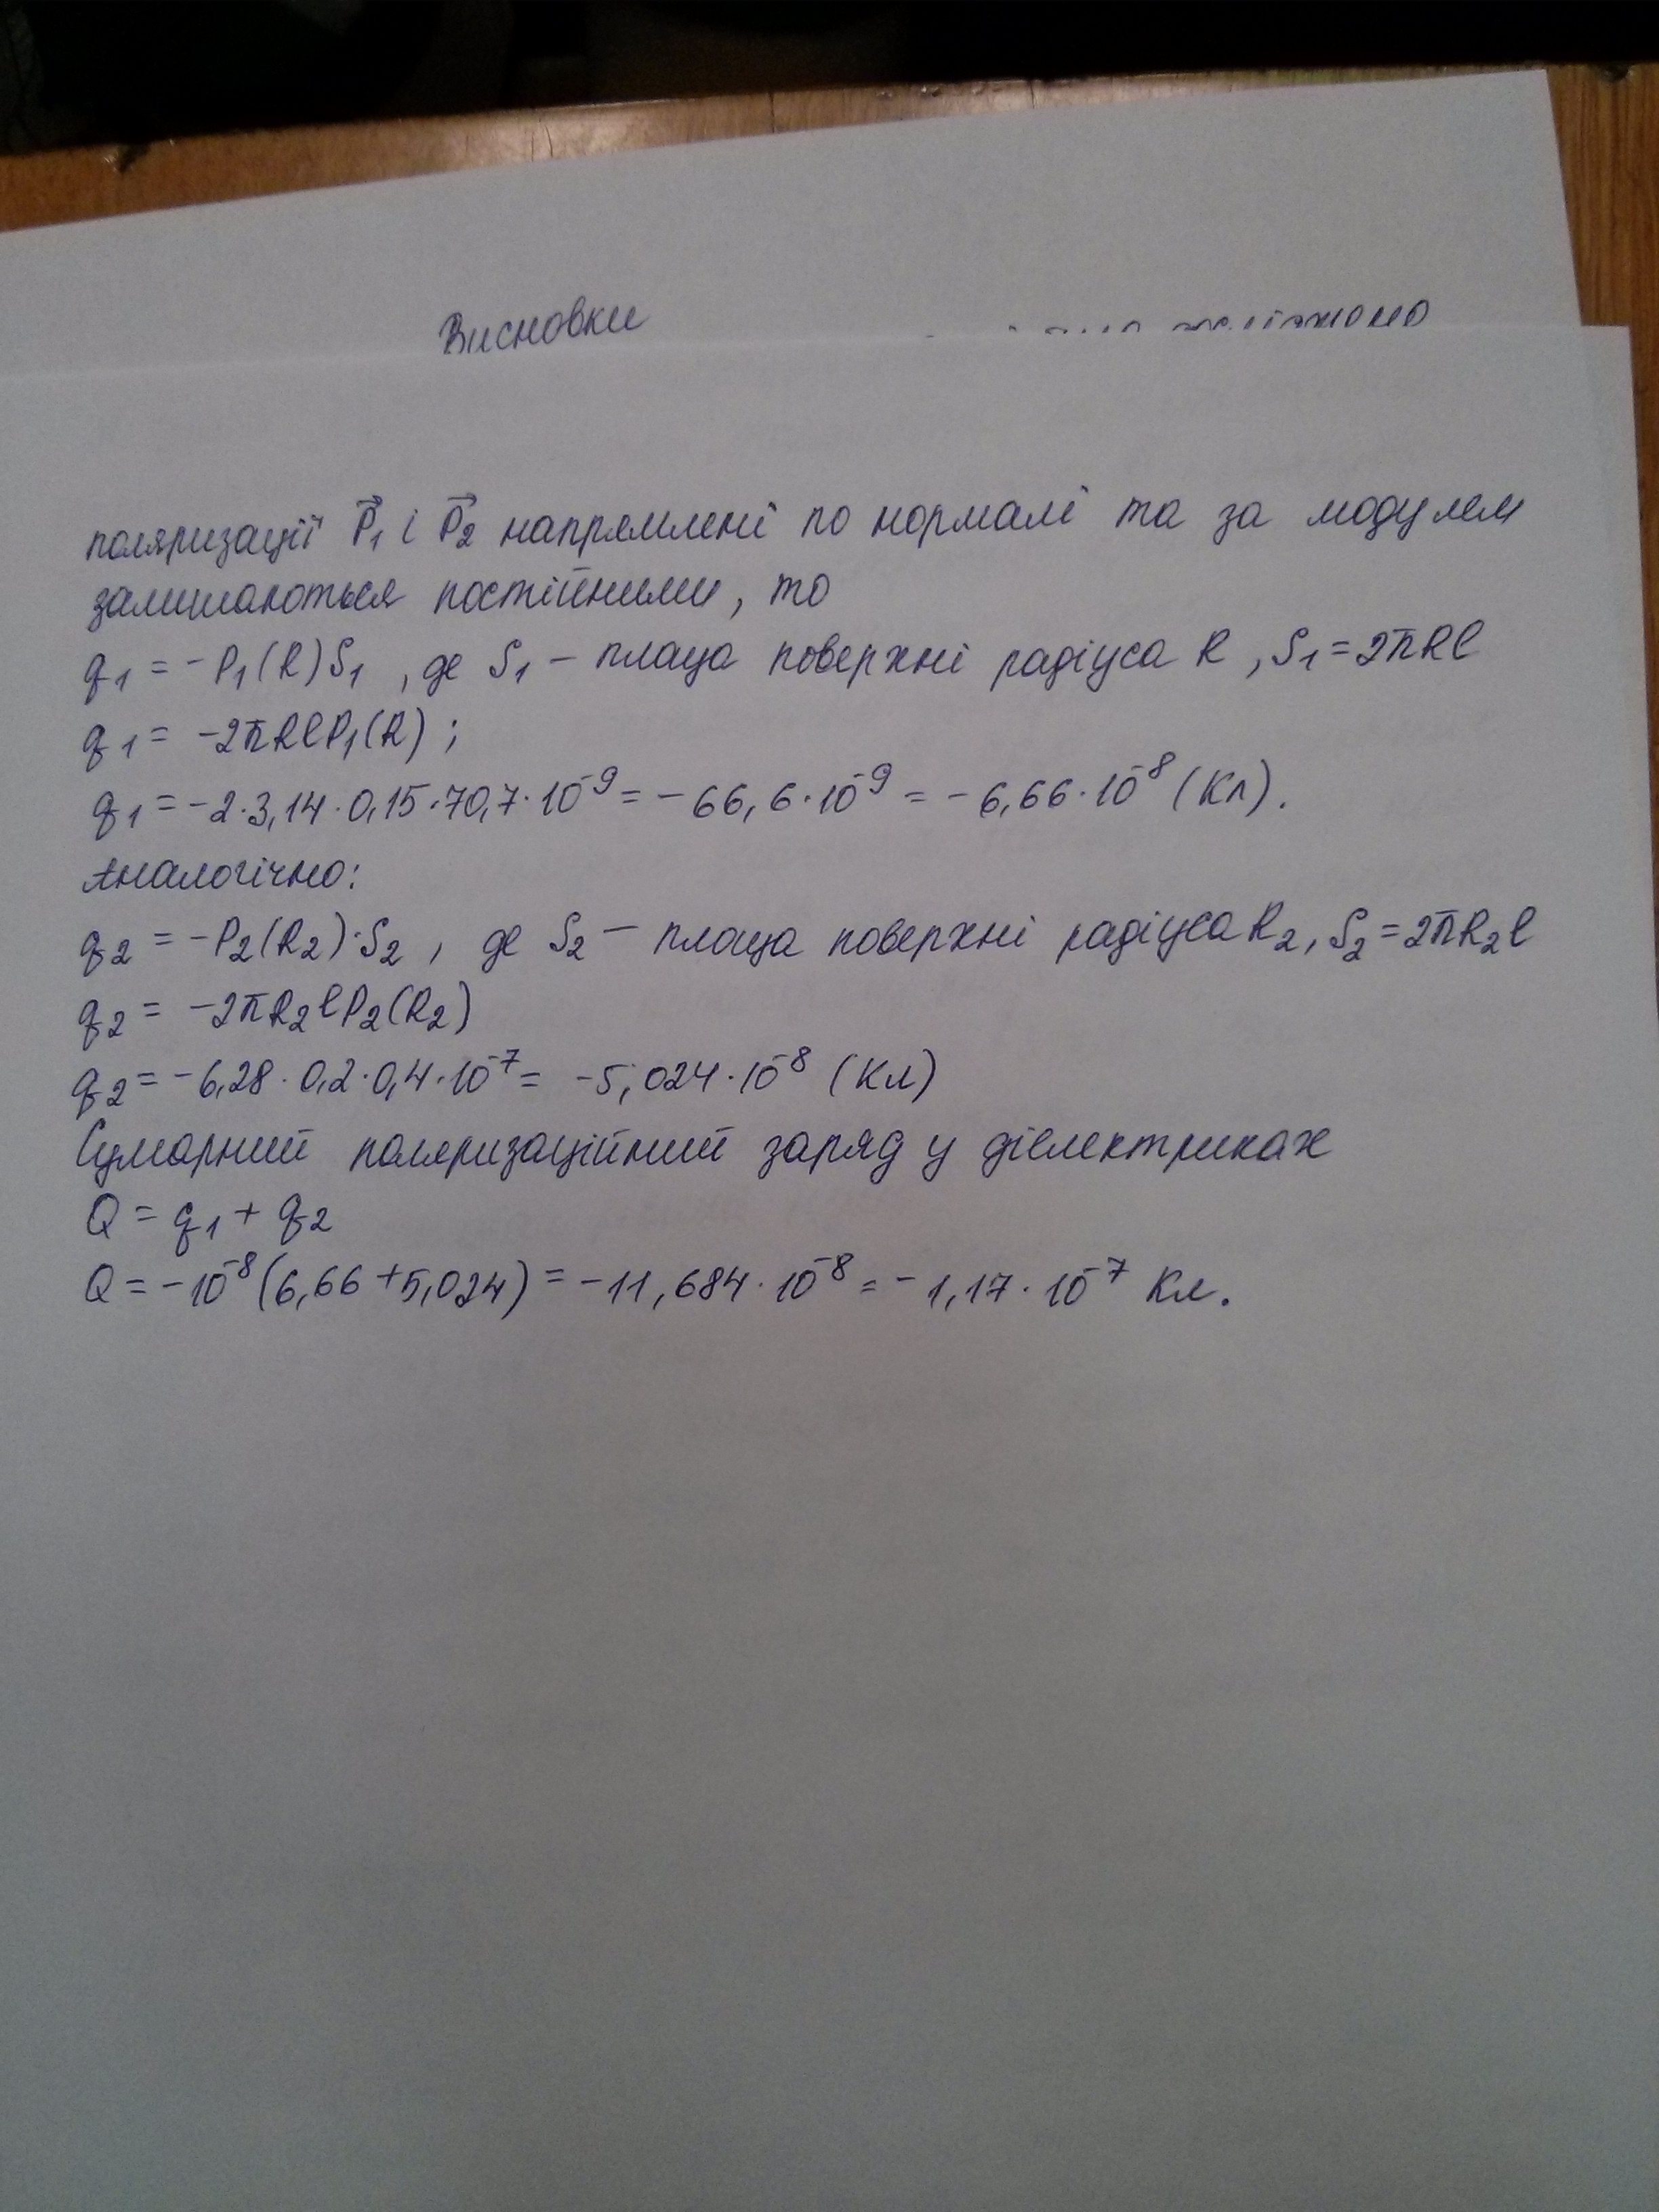 Висновки
поляризації P⃗₁ і P⃗₂ напрямлені по нормалі та за модулем
залишаються постійними, то
q₁ = -P₁(R)S₁ , де S₁ – площа поверхні радіуса R , S₁ = 2πRl
q₁ = -2πRlP₁(R) ;
q₁ = -2·3,14·0,15·70,7·10⁻⁹ = -66,6·10⁻⁹ = -6,66·10⁻⁸ (Кл).
Аналогічно:
q₂ = -P₂(R₂)·S₂ , де S₂ – площа поверхні радіуса R₂, S₂ = 2πR₂l
q₂ = -2πR₂lP₂(R₂)
q₂ = -6,28·0,2·0,4·10⁻⁷ = -5,024·10⁻⁸ (Кл)
Сумарний поляризаційний заряд у діелектриках
Q = q₁ + q₂
Q = -10⁻⁸(6,66+5,024) = -11,684·10⁻⁸ = -1,17·10⁻⁷ Кл.